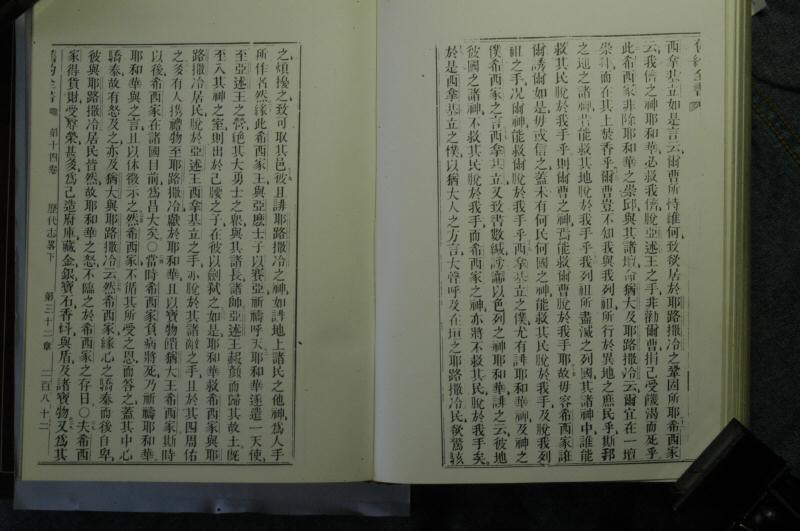 西拿基立如是言云爾曹所恃維何致欲居於耶路撒冷之鞏固所耶希西家
云我儕之神耶和華必救我儕脫亞述王之手非勸爾曹捐己受饑渴而死乎
此希西家非除耶和華之崇邱與其諸壇命猶大及耶路撒冷云爾宜在一壇
崇拜而在其上焚香乎爾曹豈不知我與我列祖所行於異地之庶民乎斯邦
之地之諸神豈能救其地脫於我手乎我列祖所盡滅之列國其諸神中誰能
救其民脫於我手乎則爾曹之神焉能救爾曹脫於我手耶故毋容希西家誆
爾誘爾如是毋或信之蓋未有何民何國之神能救其民脫於我手及脫我列
祖之手况爾神能救爾脫於我手乎西拿基立之僕尤有誹耶和華神及神之
僕希西家之言西拿基立又致書數緘謗讟以色列之神耶和華誹之云彼地
彼國之諸神不救其民脫於我手而希西家之神亦將不救其民脫於我手矣
於是西拿基立之僕以猶大人之方言大聲呼及在垣之耶路撒冷民欲驚駭
之煩擾之致可取其邑彼且誹耶路撒冷之神如誹地上諸民之他神爲人手
所作者然緣此希西家王與亞麼士子以賽亞祈禱呼天耶和華遂遣一天使
至亞述王之營絕其大勇士之眾與其諸長諸帥亞述王赧顏而歸其故土既
至入其神之室則出於己腰之子在彼以劍弑之如是耶和華救希西家與耶
路撒冷居民脫於亞述王西拿基立之手亦脫於其諸敵之手且於其四周佑
之多有人携禮物至耶路撒冷獻於耶和華且以寶物饋猶大王希西家斯時
以後希西家在諸國目前爲昌大矣〇當時希西家負病將死乃祈禱耶和華
耶和華與之言且以休徵示之然希西家不循其所受之恩而答之蓋其中心
驕泰故有怒及之亦及猶大與耶路撒冷云然希西家緣心之驕泰而後自卑
彼與耶路撒冷居民皆然故耶和華之怒不臨之於希西家之存日〇夫希西
家得貨財受尊榮甚多爲己造府庫藏金銀寶石香料與盾及諸寶物又爲其
舊約全書 第十四卷 歷代志畧下 第三十二章 二百八十二